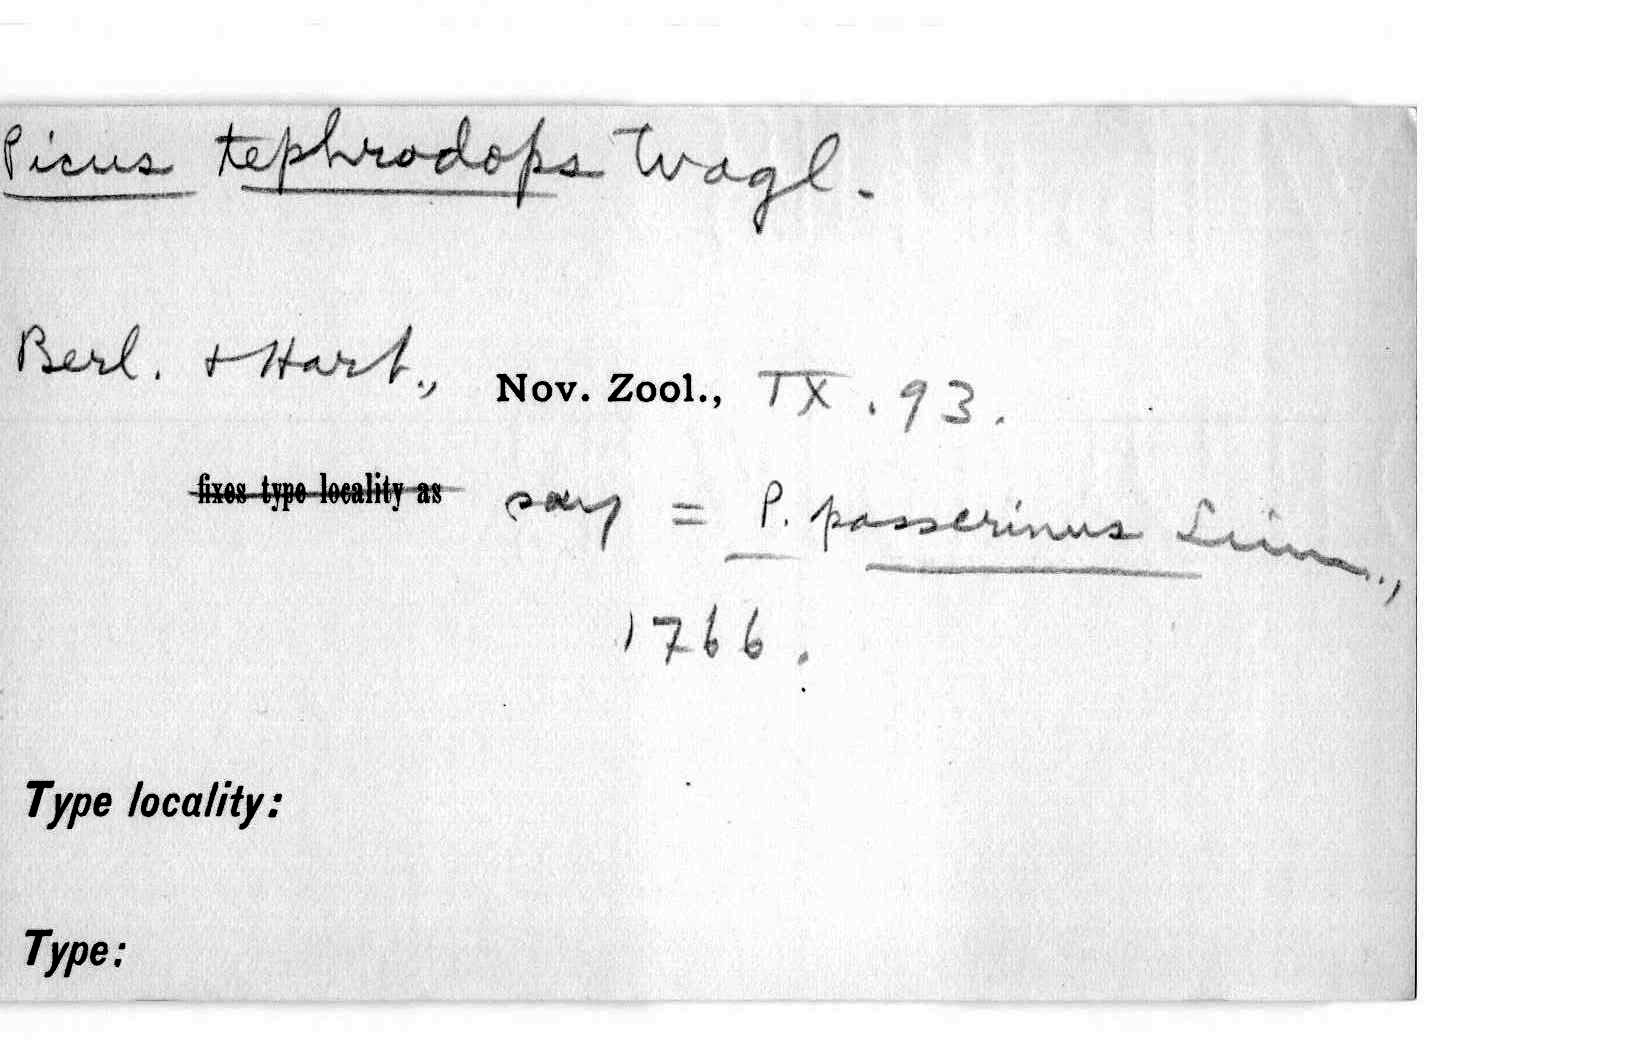 Picus tephrodops Wagl.
Berl. + Hart., Nov. Zool., IX. 93.
fixes type locality as say = P. passerinus Linn.,
1766.
Type locality:
Type: